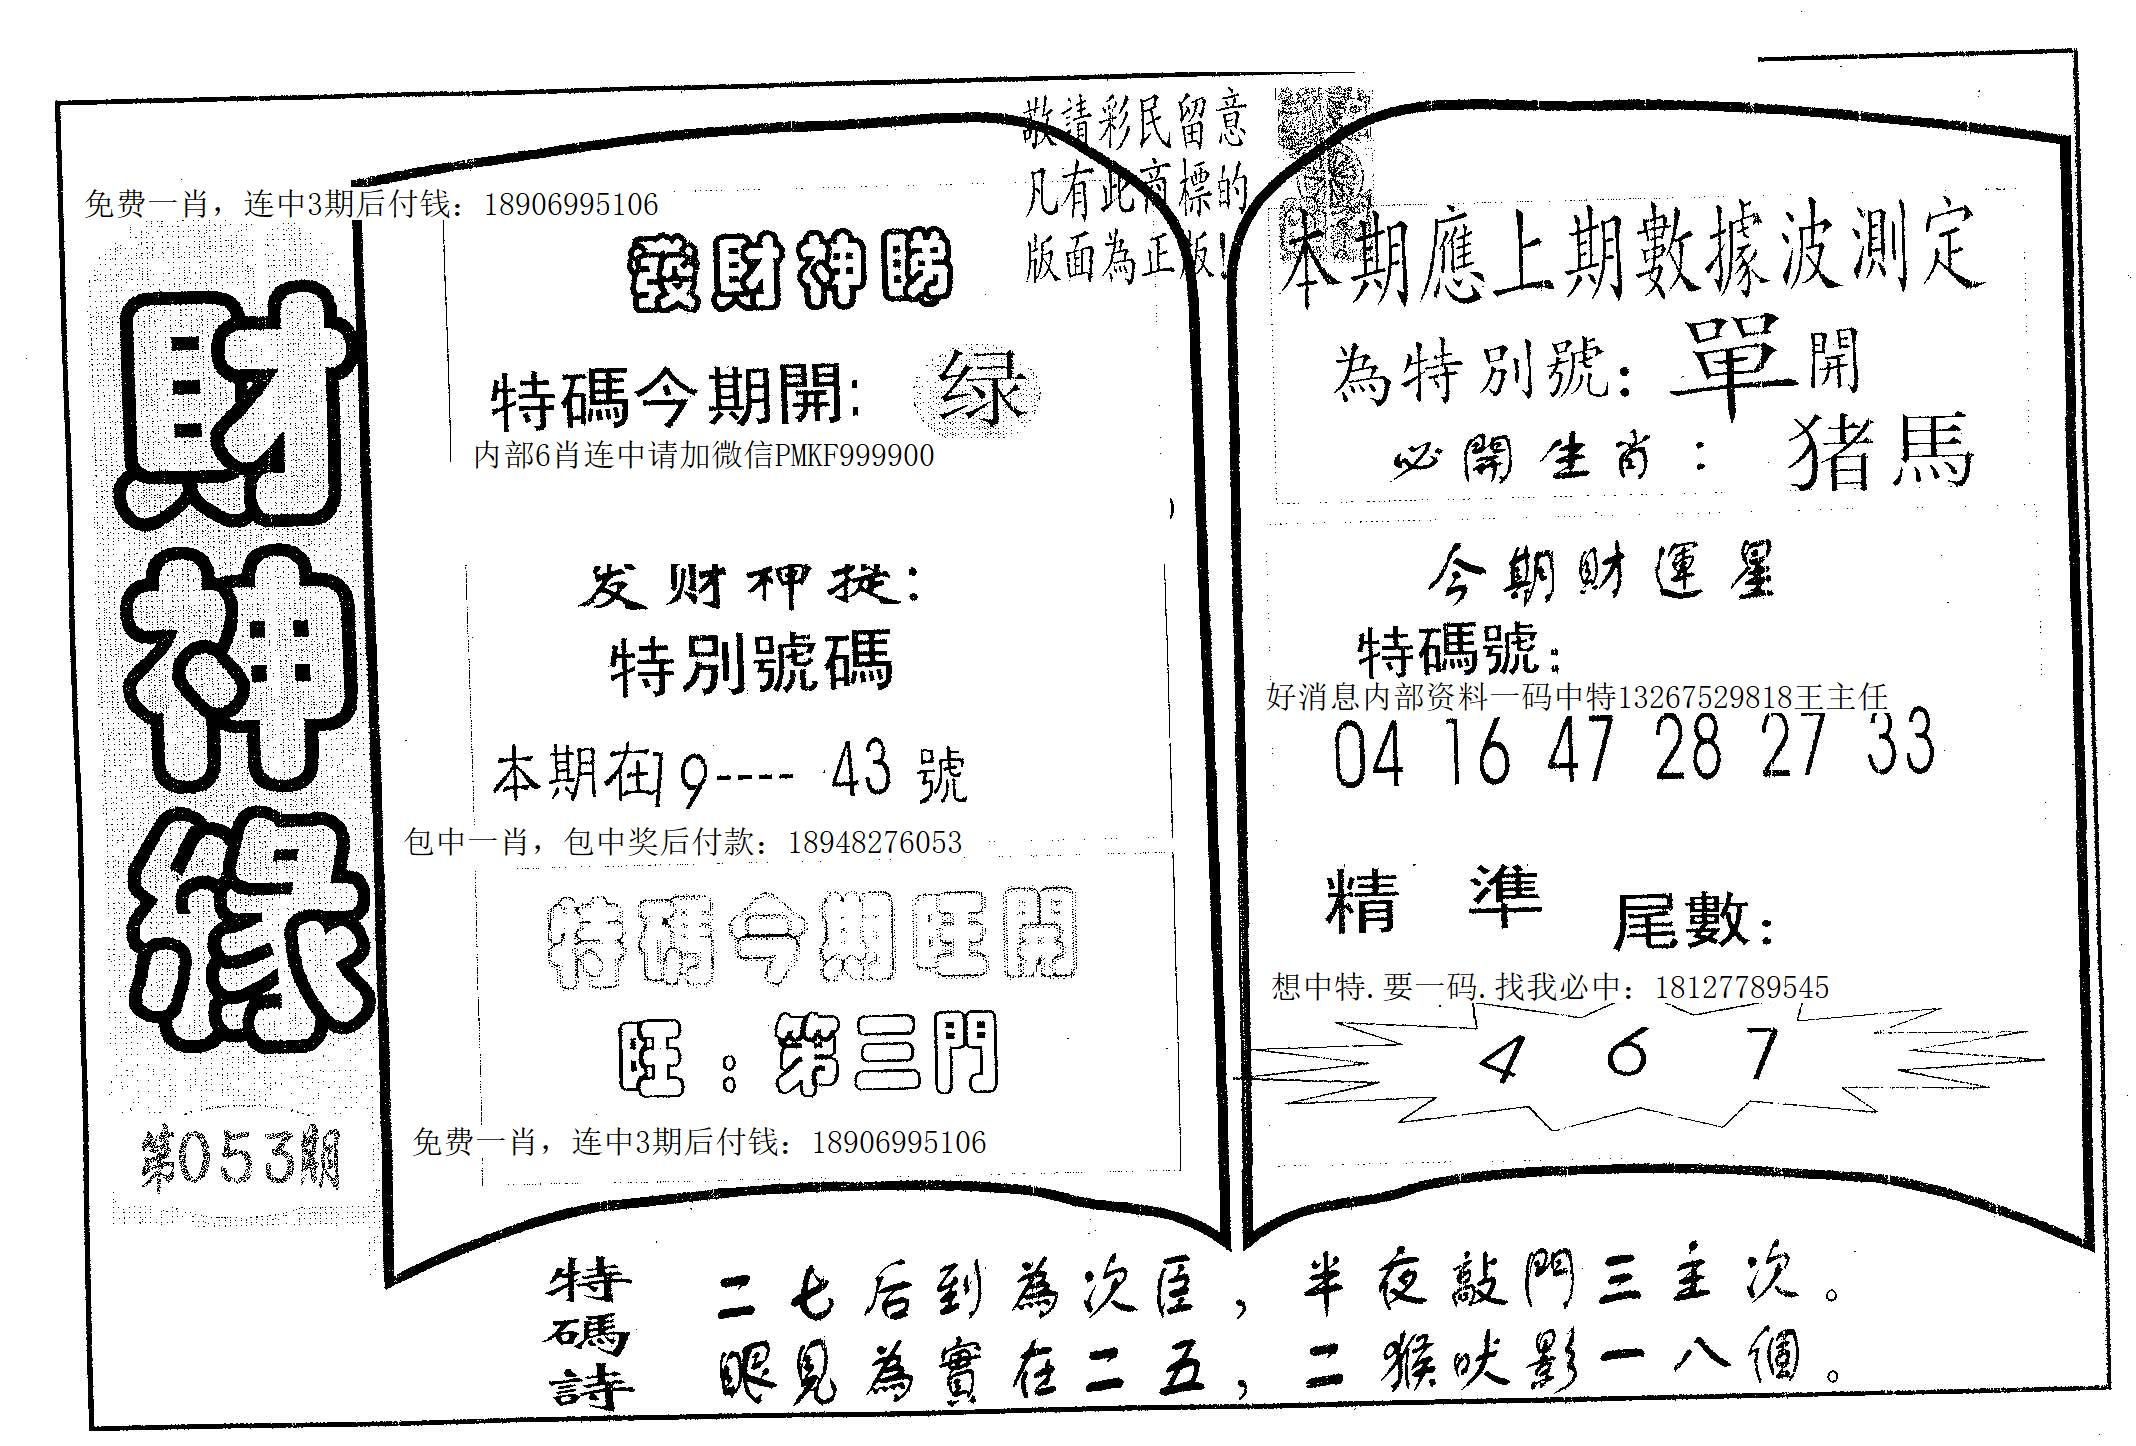 敬請彩民留意
凡有此商標的
版面為正版!
免费一肖，连中3期后付钱：18906995106
財神緣
第053期
發財神賜
特碼今期開:绿
内部6肖连中请加微信PMKF999900
发财神提:
特別號碼
本期在19----43號
包中一肖，包中奖后付款：18948276053
特碼今期旺開
旺：第三門
免费一肖，连中3期后付钱：18906995106
本期應上期數據波測定
為特別號:單開
必開生肖：猪馬
今期財運星
特碼號:
好消息内部资料一码中特13267529818王主任
04 16 47 28 27 33
精準尾數:
想中特.要一码.找我必中：18127789545
4 6 7
特碼詩
二七后到為次臣，半夜敲門三主次。
眼見為實在二五，二猴吠影一八個。